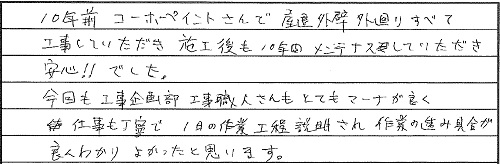 10年前 コーホーペイントさんで 屋根外壁 外廻りすべて
工事していただき 施工後も 10年間 メンテナス迄していただき
安心!! でした。
今回も 工事企画部 工事職人さんも とてもマーナが良く
仕事も丁寧で 1日の作業工程説明され 作業の進み具合が
良くわかり よかったと思います。